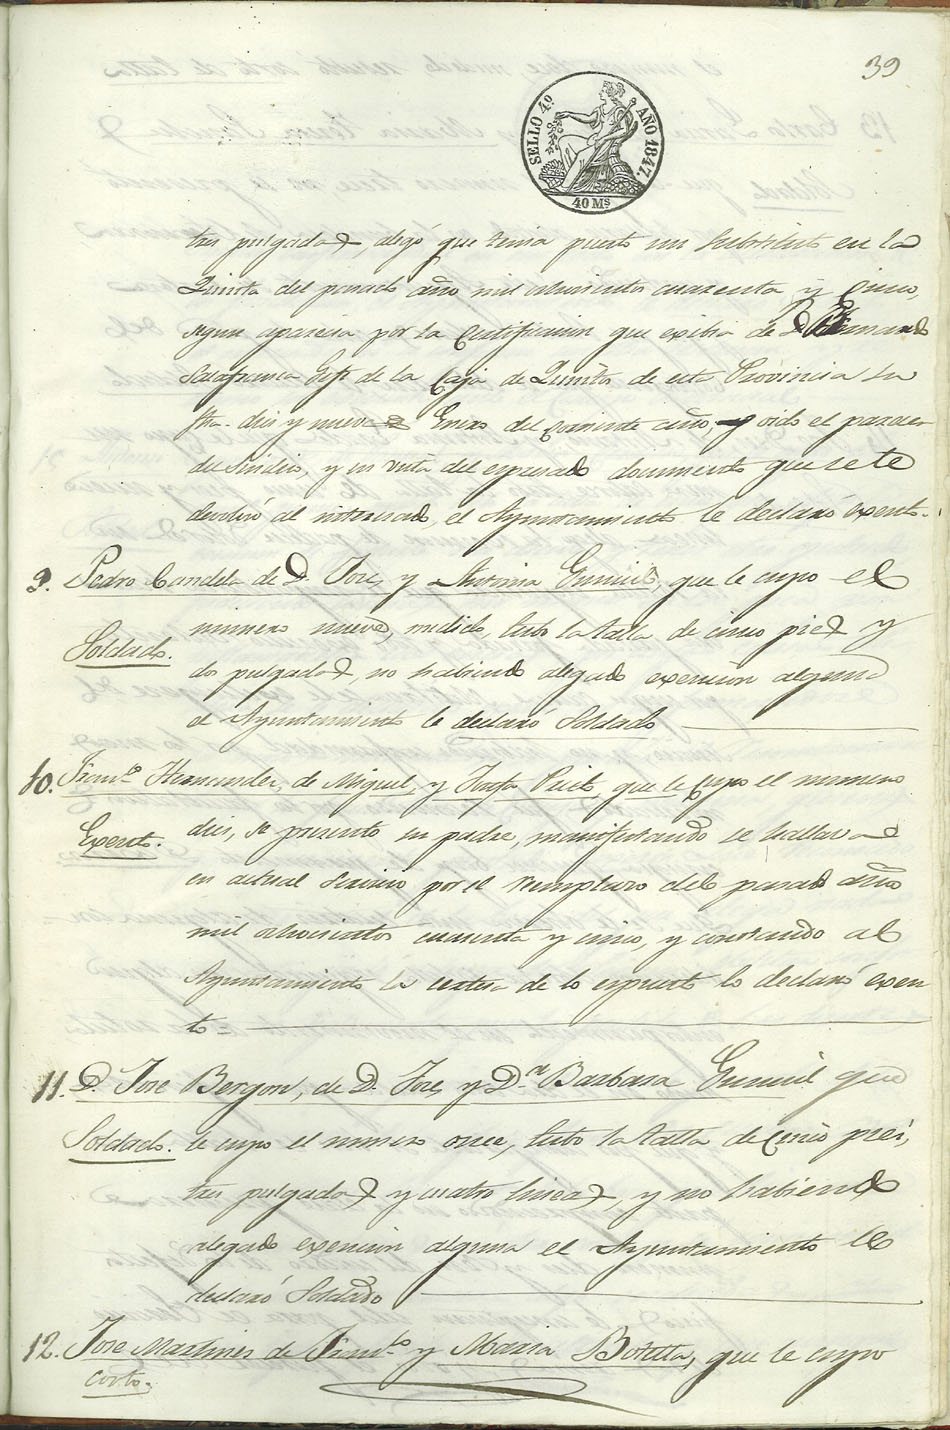 39
SELLO 4º AÑO 1847.
40 Ms
tres pulgadas, alegó que tenia puesto un substituto en la
Quinta del pasado año mil ochocientos cuarenta y cinco,
segun aparecia por la certificacion que exibia de D. Fernando
Salafranca Gefe de la Caja de Quintos de esta Provincia su
fha. diez y nueve Enero del corriente año, y oido el parecer
del Sindico, y en vista del espresado documento que se le
devolvió al interesado, el Ayuntamiento le declaró exento.
9. Pedro Candela de D. Jose, y Antonia Gumiel, que le cupo el
Soldado.
numero nueve, medido, tubo la talla de cinco pies y
dos pulgadas, no habiendo alegado exencion alguna
el Ayuntamiento le declaró Soldado
10. Franco. Hernandez, de Miguel, y Josefa Prieto, que le cupo el numero
Exento.
diez, se presento su padre, manifestando se hallava
en actual servicio por el reemplazo del pasado año
mil ochocientos cuarenta y cinco, y constando al
Ayuntamiento la certesa de lo espuesto lo declaró exen
to =
11. D. Jose Bergon, de D. Jose, y Da. Barbara Gumiel que
Soldado. le cupo el numero once, tubo la talla de cinco pies,
tres pulgadas y cuatro lineas, y no habiendo
alegado exencion alguna el Ayuntamiento le
declaró Soldado
12. Jose Martinez de Franco. y Maria Botella, que le cupo
Corto.